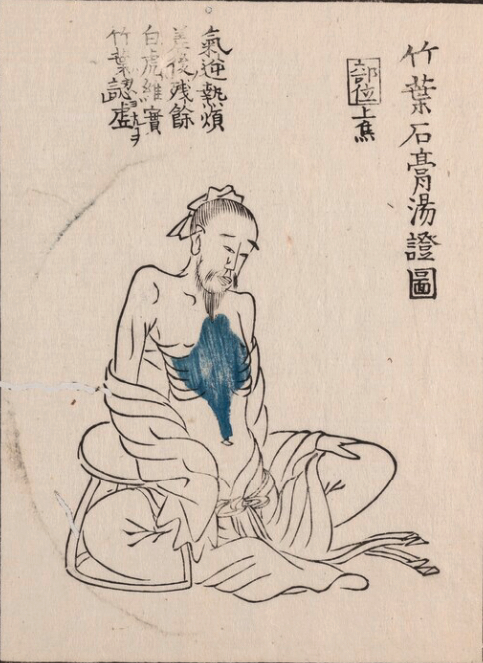 竹葉石膏湯證圖
部位上焦
氣逆熱煩
差後残餘
白虎雖實
竹葉認虛